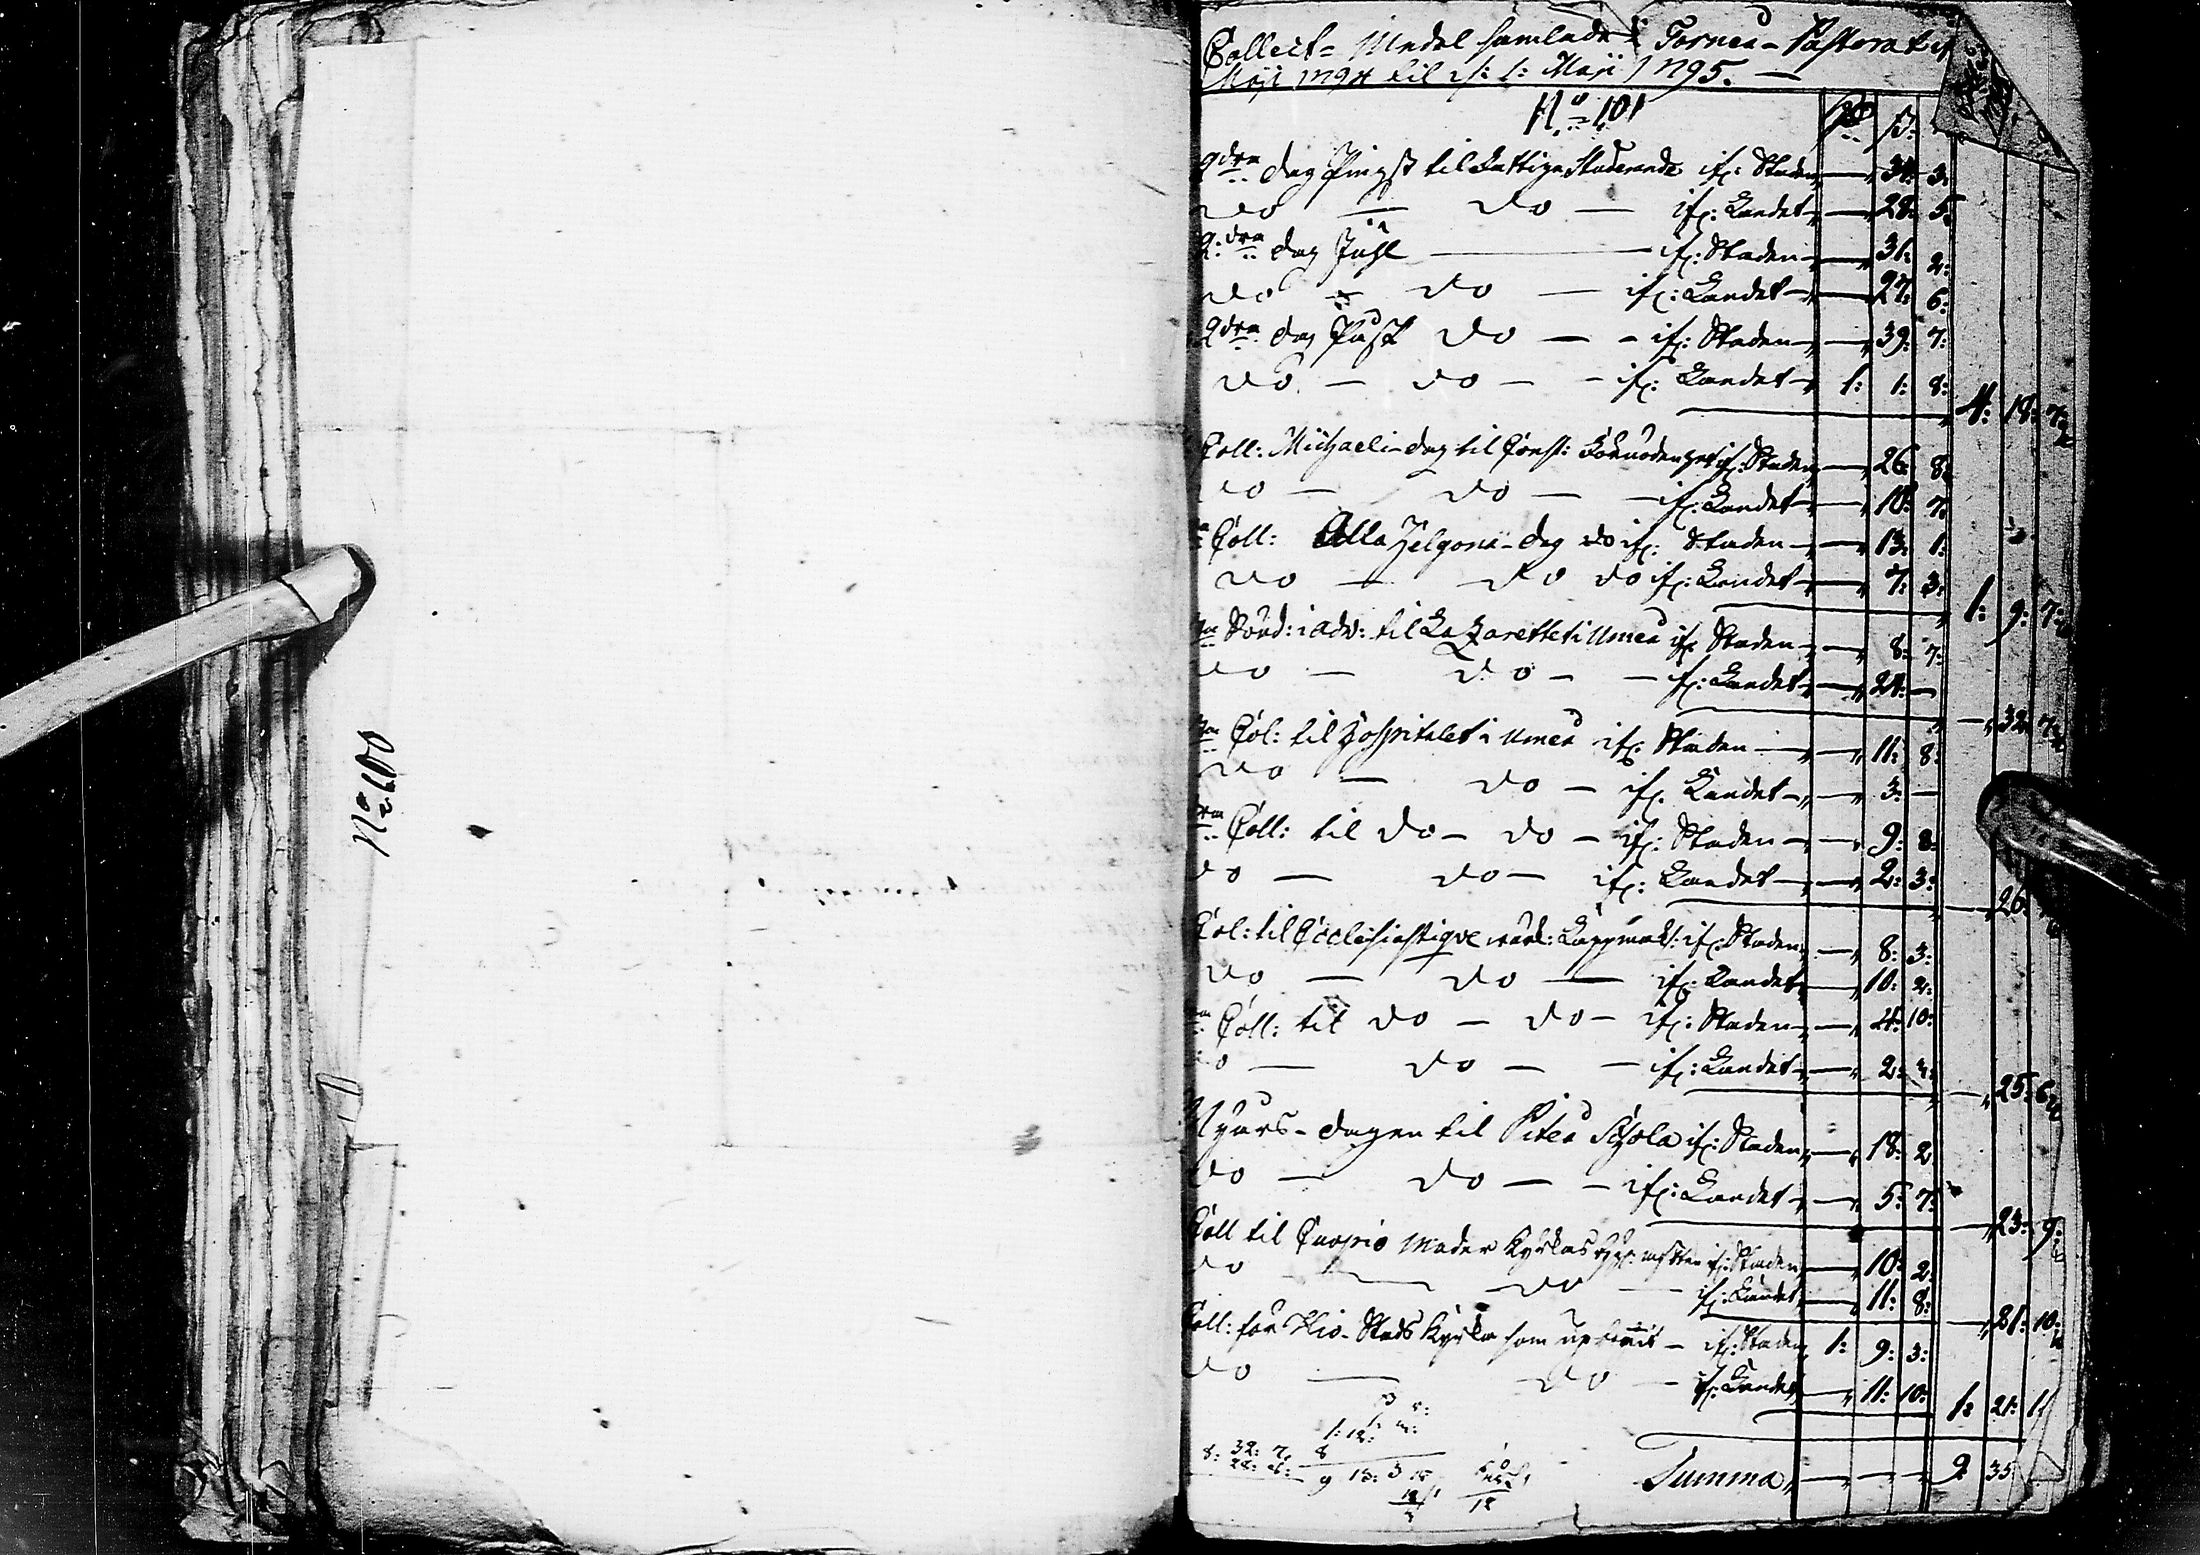 N:o 100
Collect-Medel samlade i Torneå-Pastorat if
Maji 1794 til d: 1: Maji 1795. —
N:o 101
2dra dag Pingst til Fattiga Studerande ifr: Staden — 34: 3:
Do — Do — ifr: Landet — 28: 5:
2:dra dag Juhl — ifr: Staden — 31: 2:
Do — Do — ifr: Landet — 27: 6:
2dra dag Påsk Do — - ifr: Staden — 39: 7:
Do — Do — - ifr: Landet 1: 1: 8:
4: 18: 7:
Coll: Michaeli-dag til Hosp: ifr: Staden — 26: 8:
Do — Do — - ifr: Landet — 10: 7:
Coll: Alla Helgona-dag do ifr: Staden — 13: 1:
Do — Do do ifr: Landet — 7: 3:
1: 9: 7:
Sönd: i adv: til Lazarettet i Umeå ifr: Staden — 8: 7:
Do — Do - - ifr: Landet — 24: —
— 32: 7:
Col: til Hospitalet i Umeå ifr: Staden — 11: 8:
Do — Do — ifr: Landet — 3: —
Coll: til Do - Do - ifr: Staden — 9: 8:
Do — Do — ifr: Landet — 2: 3:
— 26:
Col: til Ecclesiastique värk: Lappmark: ifr: Staden — 8: 3:
Do — Do — ifr: Landet — 10: 2:
Coll: til Do — Do - ifr: Staden — 4: 10:
Do — Do — - ifr: Landet — 2:
— 25: 6
Nyårs-dagen til Piteå Schola ifr: Staden — 18: 2
Do — Do — - ifr: Landet — 5: 7:
— 23: 9:
Coll til Cuopio Moder Kyrkas ifr: Staden — 10: 2:
Do — Do — ifr: Landet — 11: 8:
— 21: 10:
Coll: för Stads Kyrka som - ifr: Staden 1: 9: 3:
Do — Do — ifr: Landet — 11: 10:
1: 21: 1:
Summa — - - 9 35